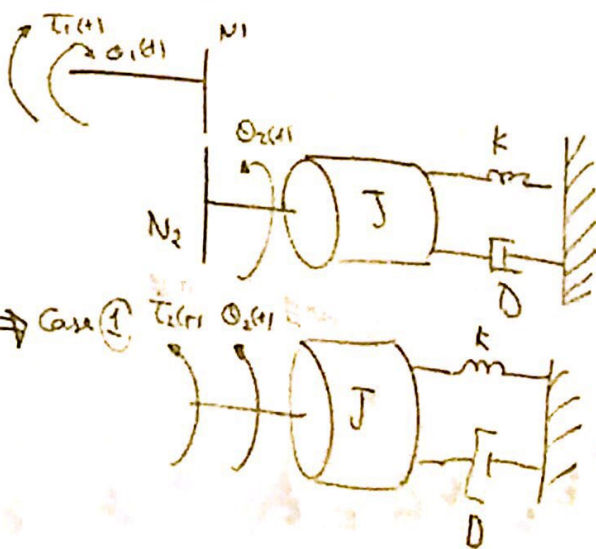 T₁(t)
θ₁(t)
N1
θ₂(t)
K
J
N₂
D
⇒ Case ① T₂(t) θ₂(t)
K
J
D